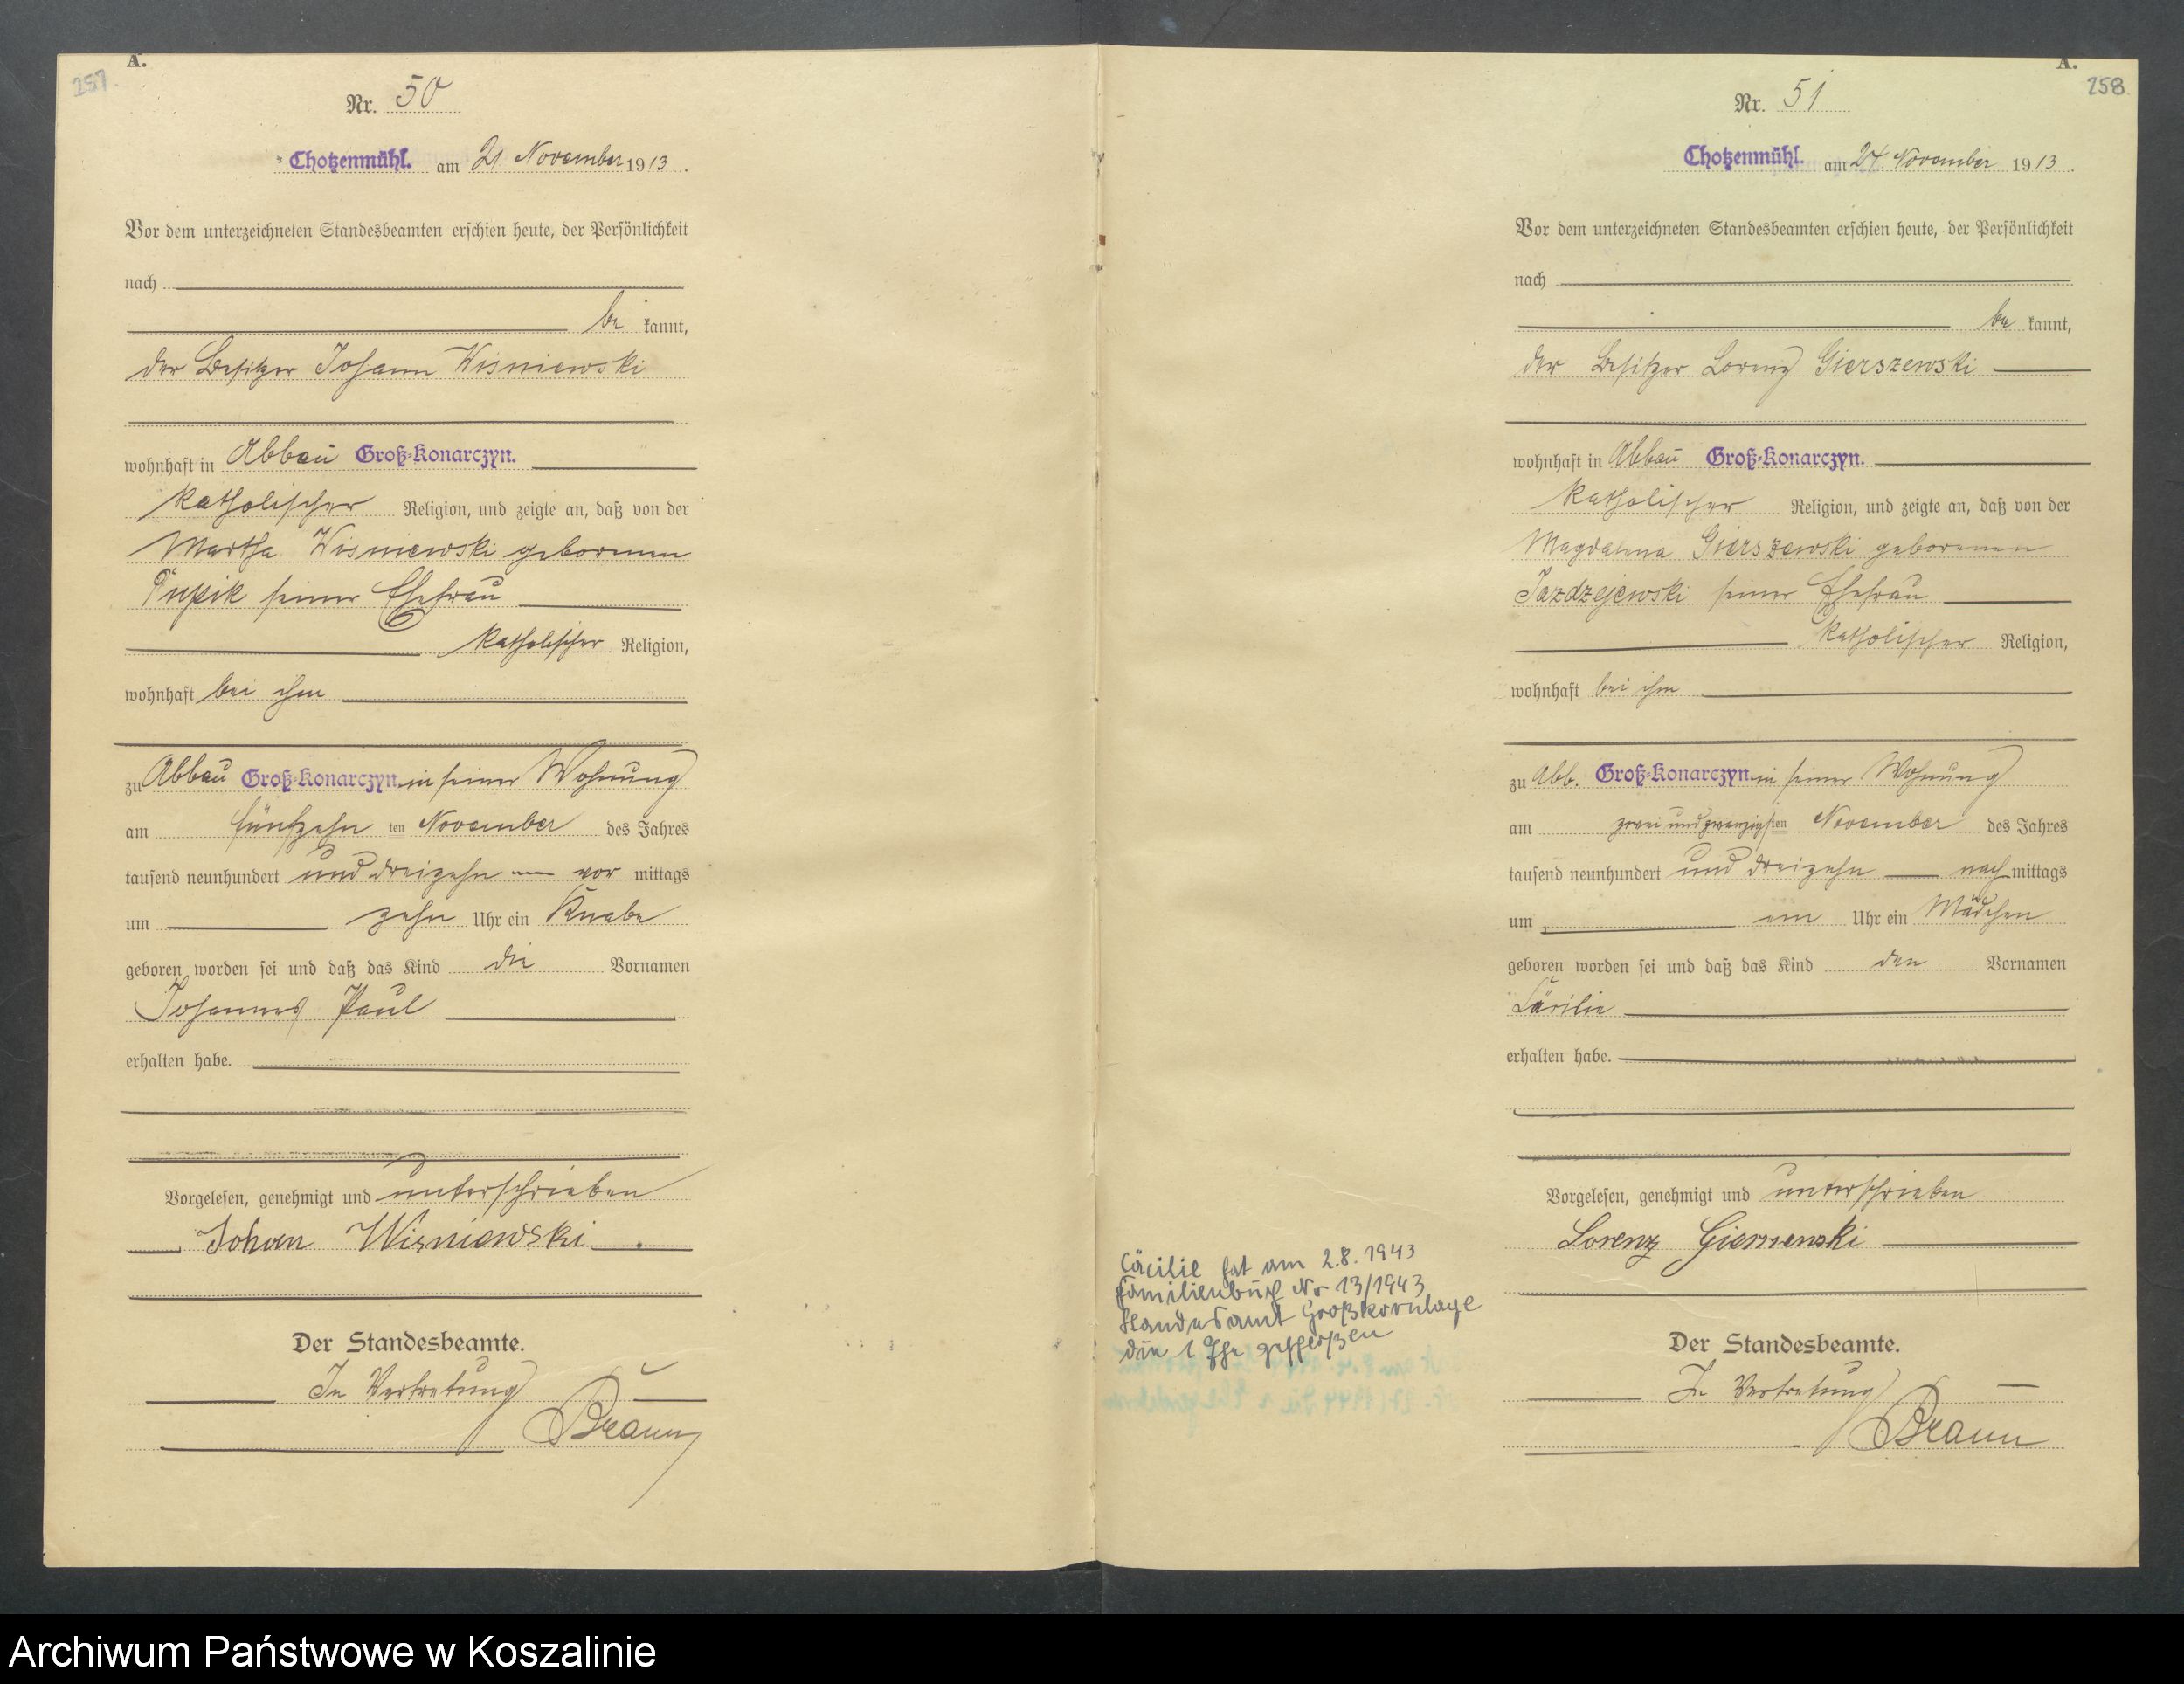 A.
257.
Nr. 50
Chotzenmühl. am 21 November 1913.
Vor dem unterzeichneten Standesbeamten erschien heute, der Persönlichkeit
nach
be kannt,
der Besitzer Johann Wisniewski
wohnhaft in Abbau Groß-Konarczyn.
katholischer Religion, und zeigte an, daß von der
Martha Wisniewski geborenen
Pupik seiner Ehefrau
katholischer Religion,
wohnhaft bei ihm
zu Abbau Groß-Konarczyn in seiner Wohnung
am fünfzehn ten November des Jahres
tausend neunhundert und dreizehn vor mittags
um zehn Uhr ein Knabe
geboren worden sei und daß das Kind die Vornamen
Johannes Paul
erhalten habe.
Vorgelesen, genehmigt und unterschrieben
Johan Wisniewski
Der Standesbeamte.
In Vertretung
Braun
A.
258.
Nr. 51
Chotzenmühl. am 24. November 1913.
Vor dem unterzeichneten Standesbeamten erschien heute, der Persönlichkeit
nach
be kannt,
der Besitzer Lorenz Gierszewski
wohnhaft in Abbau Groß-Konarczyn.
katholischer Religion, und zeigte an, daß von der
Magdalena Gierszewski geborenen
Jazdzejewski seiner Ehefrau
katholischer Religion,
wohnhaft bei ihm
zu Abb. Groß-Konarczyn in seiner Wohnung
am zwei und zwanzigsten November des Jahres
tausend neunhundert und dreizehn nach mittags
um ein Uhr ein Mädchen
geboren worden sei und daß das Kind den Vornamen
Cäcilie
erhalten habe.
Vorgelesen, genehmigt und unterschrieben
Lorenz Gierszewski
Der Standesbeamte.
In Vertretung
Braun
Cäcilie hat am 2.8.1943
Familienbuch Nr 13/1943
Standesamt Großkornlage
die 1 Ehe geschloßen
Archiwum Państwowe w Koszalinie